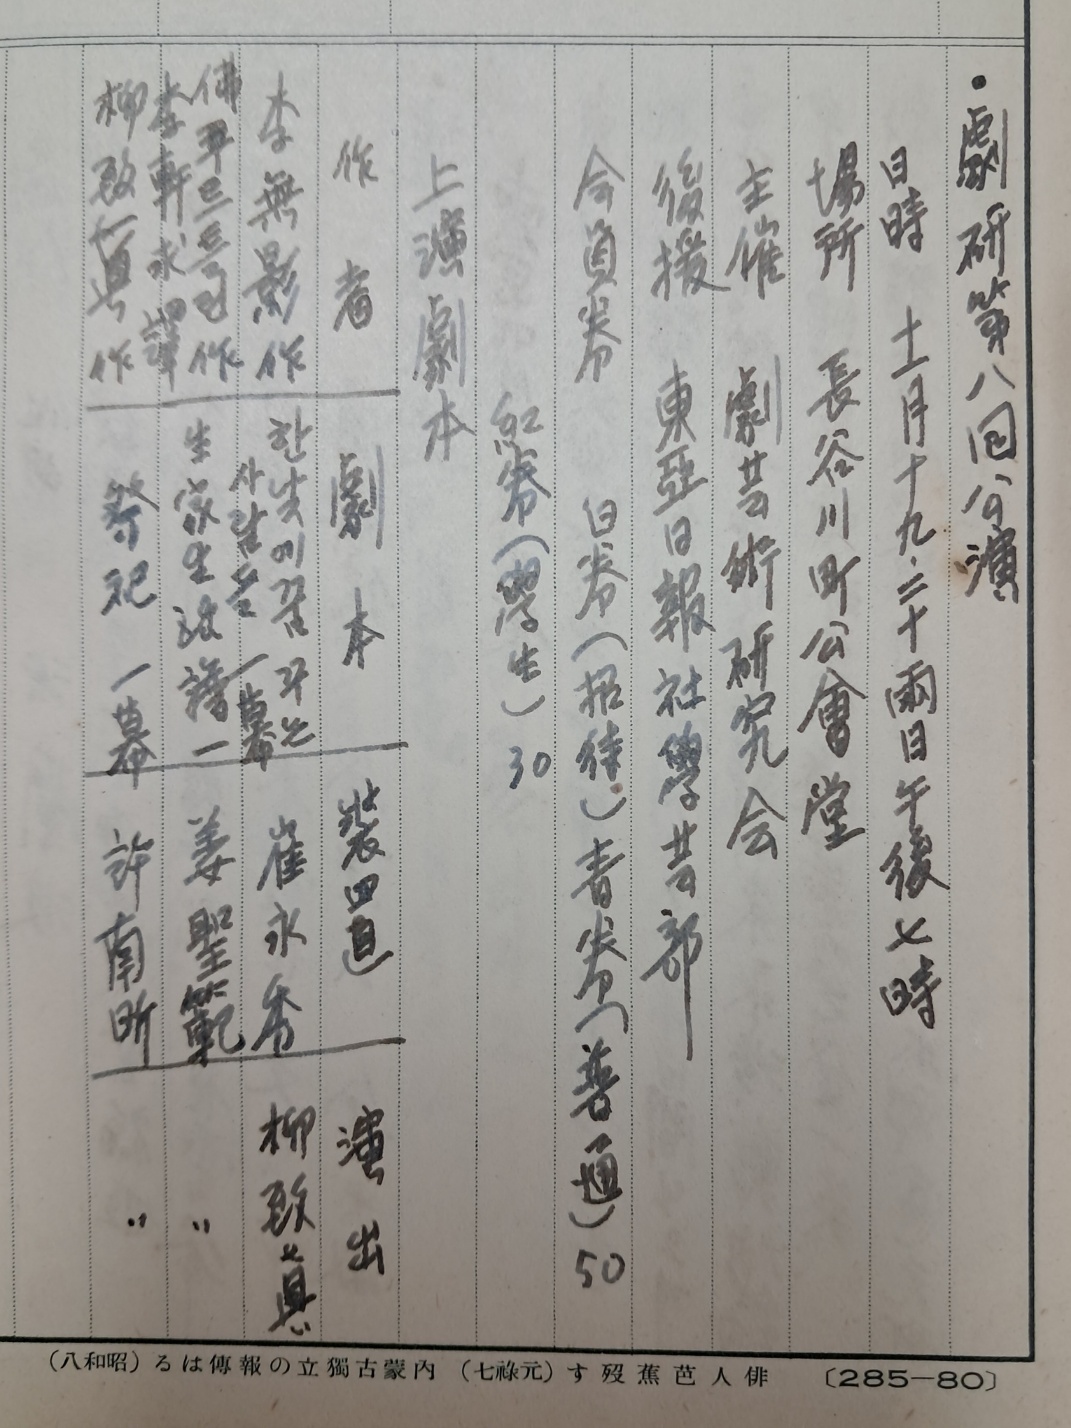 ・劇研第八回公演
日時 十一月十九、二十両日午後七時
場所 長谷川町公會堂
主催 劇芸術研究会
後援 東亞日報社學芸部
会員券 白券(招待)青券(普通)50
紅券(學生)30
上演劇本
作者 劇本 装置 演出
李無影作 한낮에꿈꾸는사람들 一幕 崔永秀 柳致眞
佛 作 李軒求譯 一 姜聖範 〃
柳致眞作 祭祀 一幕 許南昕 〃
(八和昭)るは傳報の立獨古蒙內 (七祿元)す歿蕉芭人俳 〔285—80〕